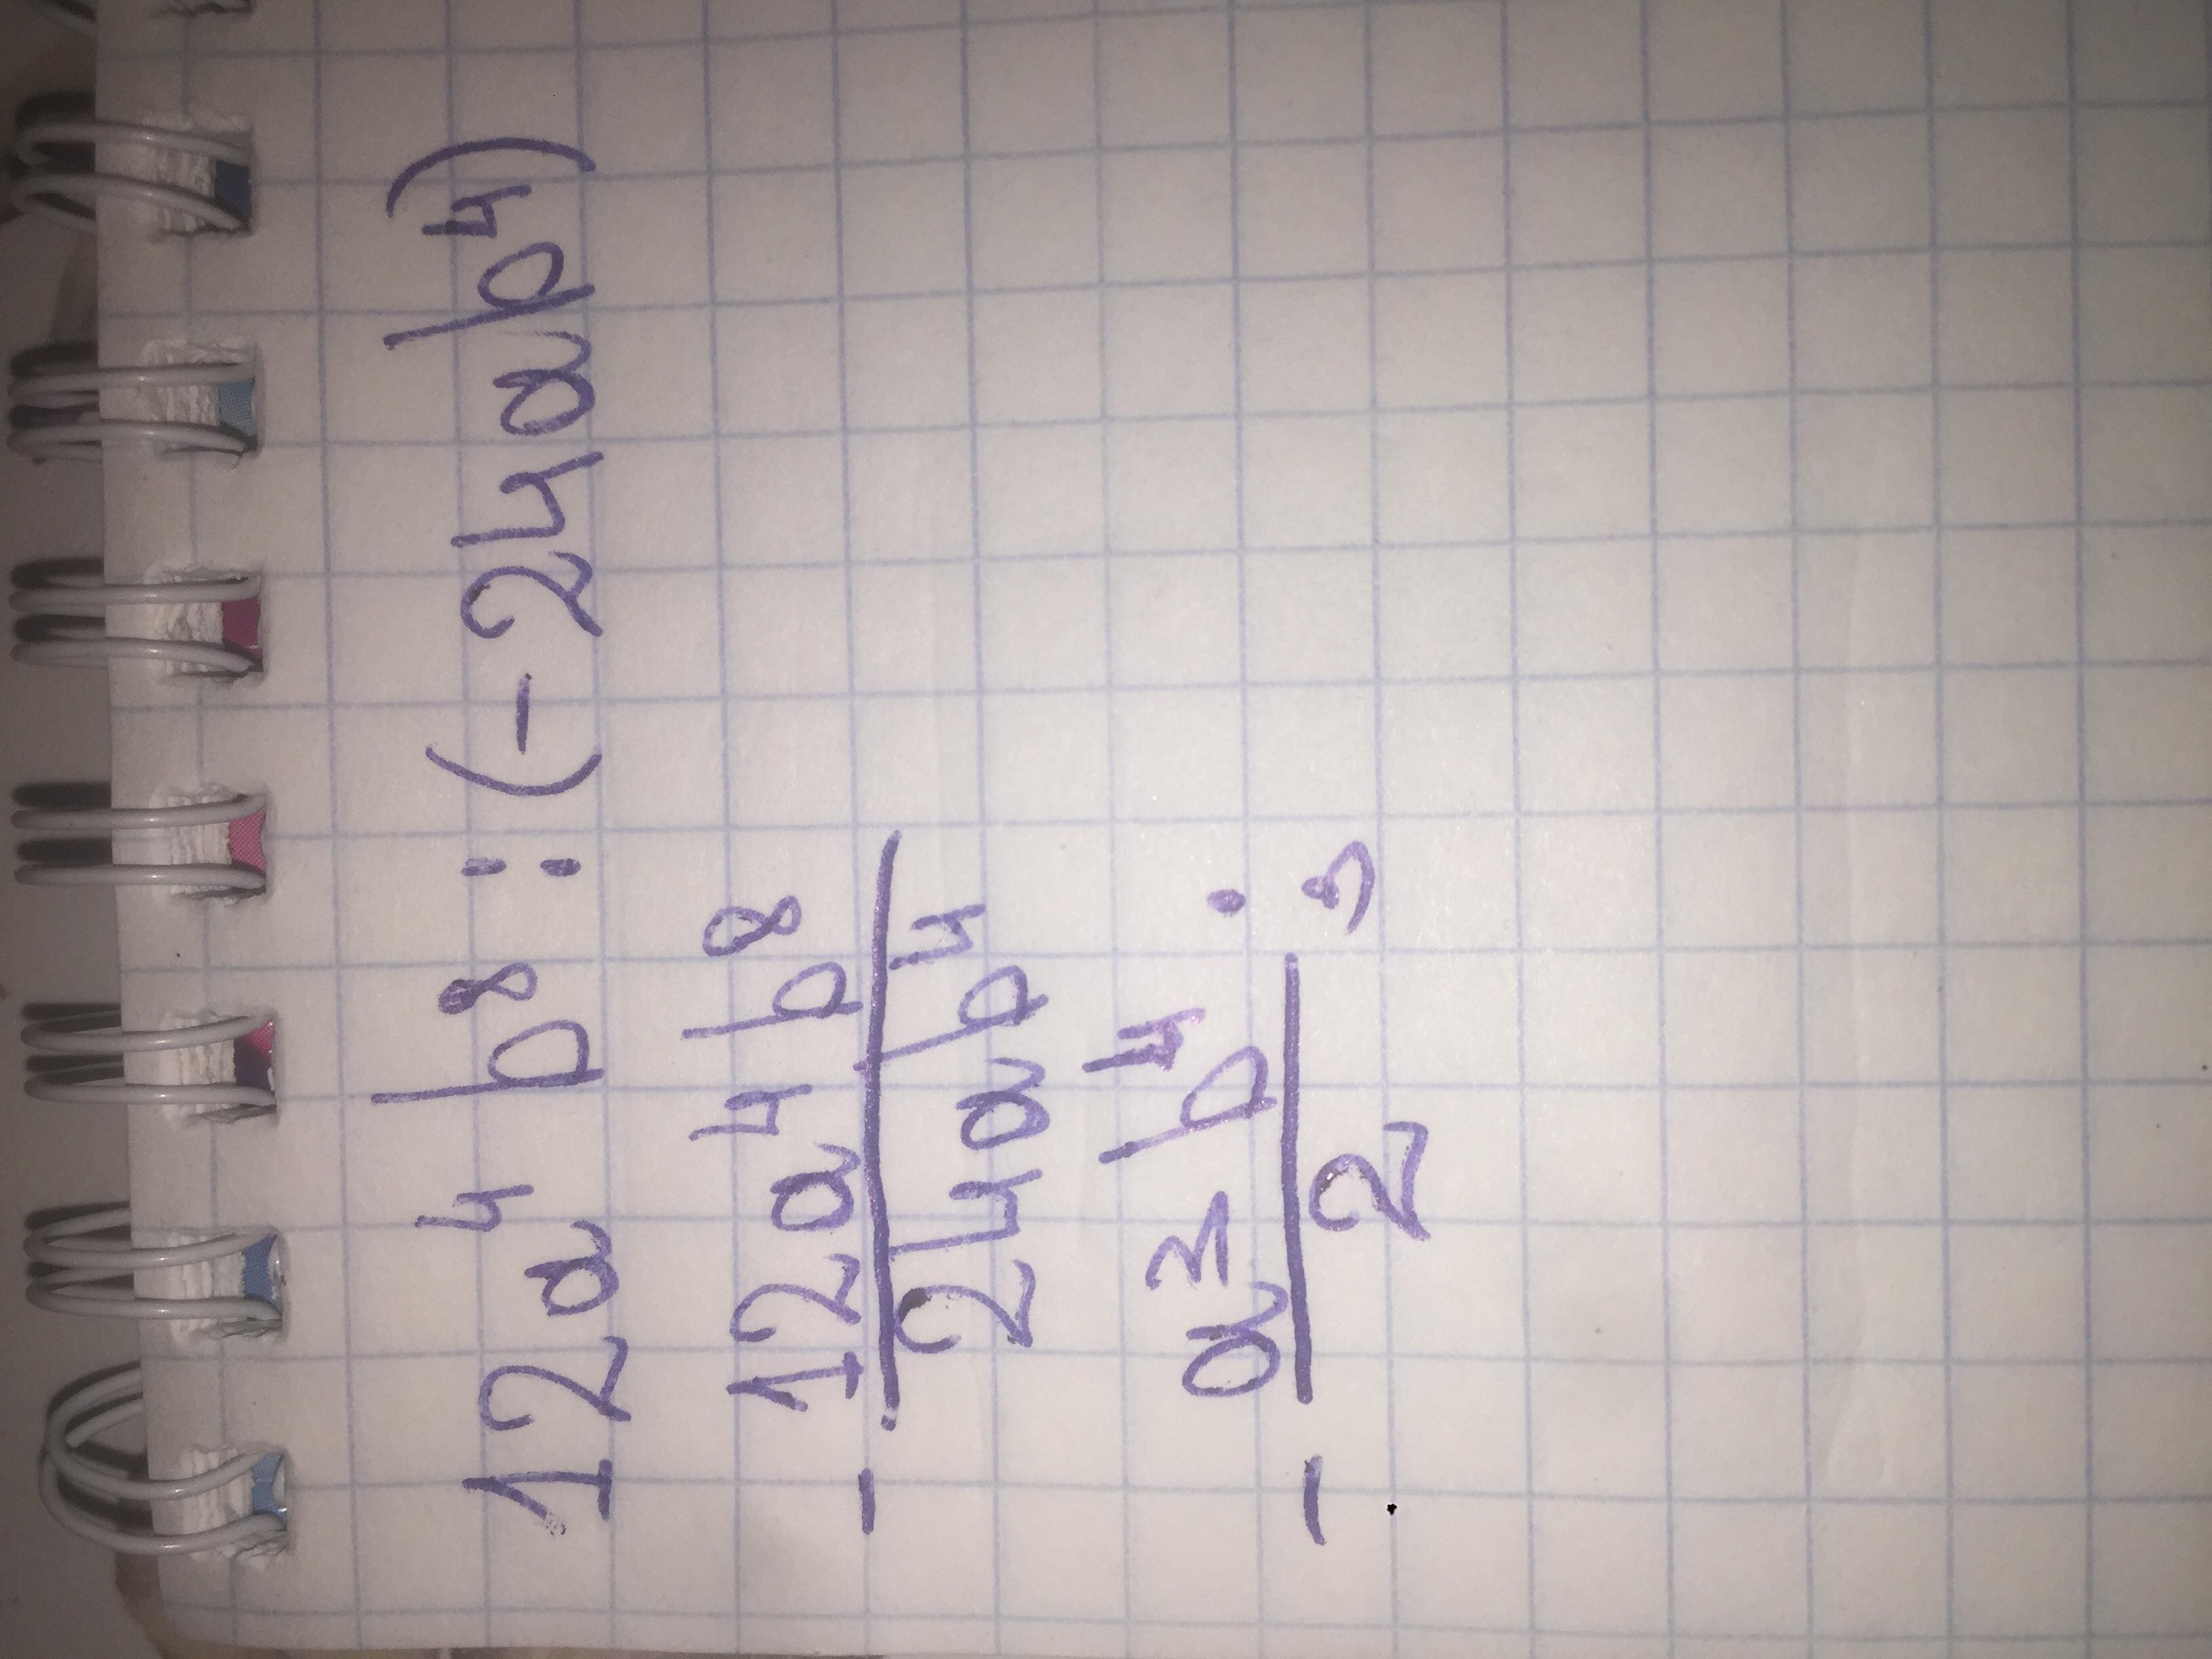 12a⁴b⁸ : (-24ab⁴)
- 12a⁴b⁸
24ab⁴
- a³b⁴ ;
2